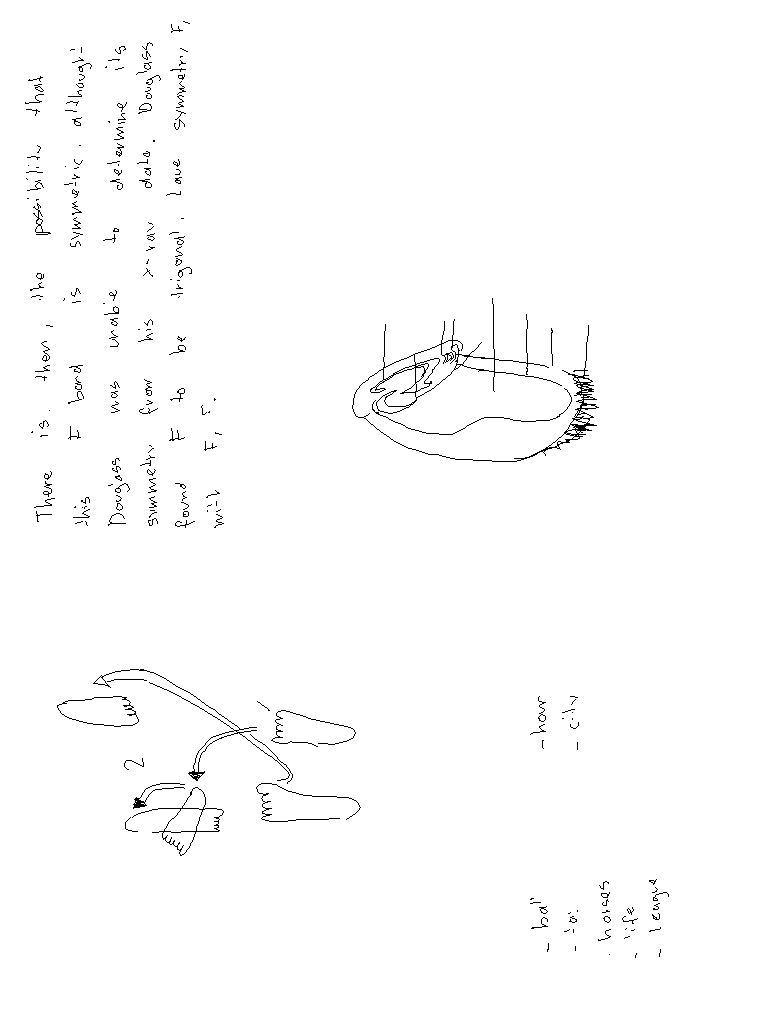 There is, then, the possibility that
this F band is symmetric, although
Douglass was unable to determine its
symmetry from his x-ray data. Douglass
found F to be trigonal, have symmetry F,
with F, F.
2
- hour
- city
- ball
- horses
- life
- league